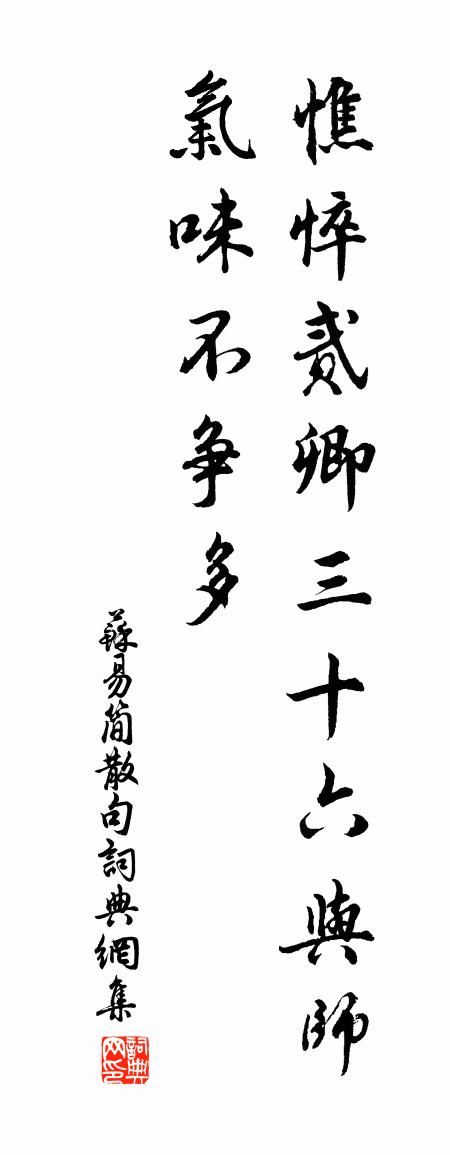 憔悴貳卿三十六與師
氣味不爭多
蘇易簡散句詞典網集
詞典网印